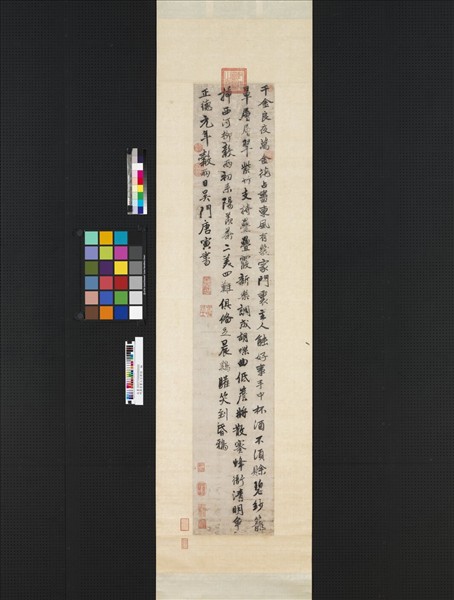 千金良夜萬金花占盡東風有幾家門裏主人能好事手中杯酒不須賒碧紗籠
罩層層翠紫竹支持疊疊霞新樂調成胡蝶曲低簷將散蜜蜂衙清明爭
插西河柳穀雨初來陽羨茶二美四難俱備足晨雞歡笑到昏鴉
正德元年穀雨日吳門唐寅書